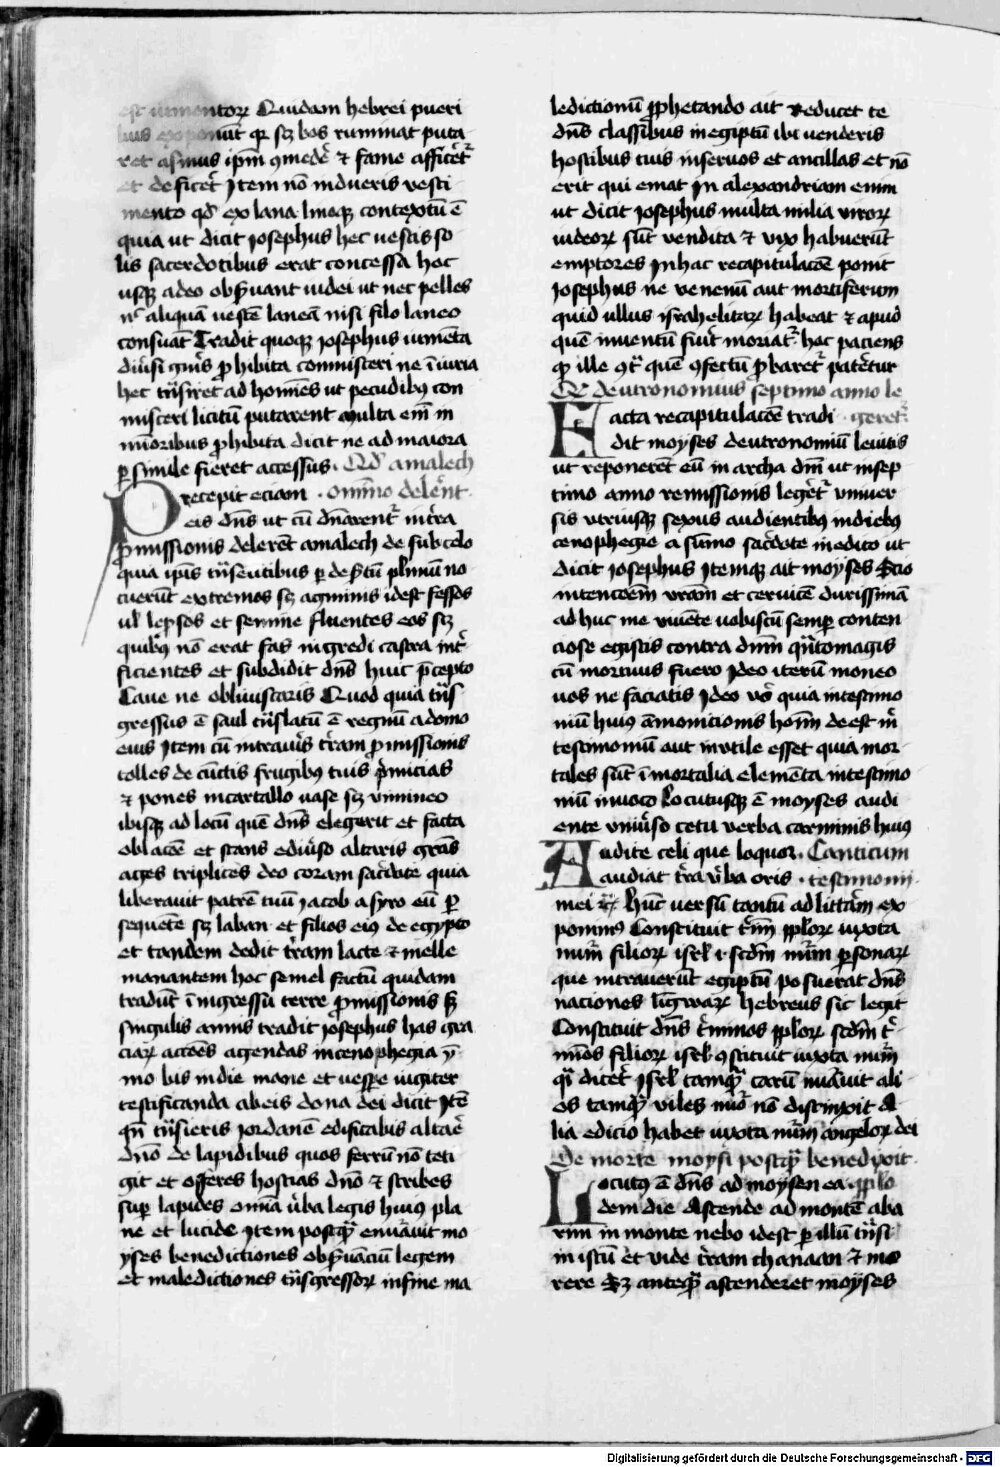 est iumentoꝝ Quidam hebrei pueri
lius exponūt qꝛ sꝫ bos ruminat puta
ret asinus ipm̄ ꝯmedē ⁊ fame afficēt᷑
et deficēt Item nō indueris vesti
mento qđ ex lana linoqꝫ contextū ē
quia ut dicit iosephus hec uestis so
lis sacerdotibus erat concessa hoc
usqꝫ adeo obẜuant iudei ut nec pelles
nꝰ aliquā uestē laneā nisi filo laneo
consuāt Tradit quoqꝫ iosephus iumēta
diūsi gn̄is ꝓhibita commisceri ne ī iuria
hec tn̄siret ad homīes ut pecudibꝰ con
misceri licitū putarent multa em̄ in
minoribus ꝓhibita dicit ne ad maiora
ꝑ simile fieret accessus · Qđ amalech
Precepit eciam · omīno delent
eis dn̄s ut cū dn̄arent᷑ in tr̄a
ꝓmissionis delerēt amalech de sub celo
quia ip̄is tn̄seuntibus ꝑ deẜtū plīmū no
cuerūt extremos sꝫ agminis idest fessos
ul̄ lepsos et semine fluentes eos sꝫ
quibꝰ nō erat fas ingredi castra int̄
ficientes et subdidit dn̄s huic p̄cepto
Caue ne obliuiscaris Quod quia tn̄s
gressus ē saul tn̄slatū ē regnū a domo
eius Item cū intrauīs tr̄am ꝓmissionis
tolles de cūctis frugibꝰ tuis p̄micias
⁊ pones in cartallo uase sꝫ vimineo
ibisqꝫ ad locū quē dn̄s elegerit et facta
oblacōe et stans ediūso altaris gr̄as
ages triplices deo coram sac̄dote quia
liberauit patrē tuū iacob a syro eū ꝑ
sequētē sꝫ laban et filios eiꝰ de egypto
et tandem dedit tr̄am lacte ⁊ melle
manantem hoc semel factū quidam
tradūt ī ingressu terre ꝓmissionis ẜ
singulis annis tradit iosephus has gra
ciaꝝ accōes agendas in cenophegia ẏ
mo bis in die mane et uespe iugiter
testificanda ab eis dona dei dicit Itē
qn̄ tn̄sieris iordanē edificabis altar̄
dn̄o de lapidibus quos ferrū nō teti
git et offeres hostias dn̄o ⁊ scribes
suꝑ lapides om̄ia ūba legis huiꝰ pla
ne et lucide Item postqꝫ enūauit mo
yses benedictiones obẜuāciū legem
et maledictiones tn̄sgressoꝝ in fine ma
ledictionū ꝓphetando ait Reducet te
dn̄s classibus in egiptū ibi uenderis
hostibus tuis in seruos et ancillas et nō
erit qui emat In alexandriam enim
ut dicit iosephus multa milia viroꝝ
iudeoꝝ sūt vendita ⁊ vix habuerūt
emptores In hac recapitulacōe ponit
iosephus ne venenū aut mortiferum
quid ullus israhelitaꝝ habeat ⁊ apud
quē inuentū fuīt moriat᷑ hoc paciens
qꝫ ille ꝯt᷑ quē ꝯfectū ꝓbaret᷑ patēetur
Qđ deutronomius septimo anno le
Facta recapitulacōe tradi · geret᷑
dit moyses deutronomiū leuitis
ut reponerēt eū in archa dn̄i ut in sep
timo anno remissionis legēt᷑ vniuer
sis vtriusqꝫ sexus audientibꝰ in diebꝰ
cenophegie a sūmo sac̄dote in edito ut
dicit iosephus Itemqꝫ ait moyses Scio
intencōem vr̄am et ceruicē durissimā
ad huc me viuēte uobiscū semꝑ conten
ciose egistis contra dn̄m qn̄tomagis
cū mortuus fuero Ideo iterū moneo
uos ne faciatis Ideo vō quia in testimo
niū huiꝰ āmonicionis hoīm deest m̄
testimoniū aut inutile esset quia mor
tales sūt ī mortalia elemēta in testimo
niū inuoco Locutusqꝫ ē moyses audi
ente vniūso cetu verba carminis huiꝰ
Audite celi que loquor · Canticum
audiat tr̄a ūba oris · testimonii ·
mei ⁊c̄ Hūc uersū tantū ad litt̄am ex
ponimꝰ Constituit t̄m̄ ppl̄oꝝ iuxta
num̄ filioꝝ isrl̄ · i · scd̄m num̄ ꝑsonaꝝ
que intrauerūt egiptū posuerat dn̄s
naciones līgwaꝝ hebreus sic legit
Constituit dn̄s t̄minos ppl̄oꝝ scd̄m t̄
mīos filioꝝ isrl̄ ꝯstituit iuxta num̄
qī dicēt isrl̄ tamqꝫ carū nūauit ali
os tamqꝫ viles mīo nō distinxit A
lia edicio habet iuxta num̄ angeloꝝ dei
De morte moysi postqꝫ benedixit ·
Locutꝰ ē dn̄s ad moysen ea · pplo
dem die Ascende ad montē aba
rim in monte nebo idest ꝑ illū tn̄si
in istū et vide tr̄am chanaan ⁊ mo
rere Sꝫ anteqꝫ ascenderet moyses
Digitalisierung gefördert durch die Deutsche Forschungsgemeinschaft - DFG